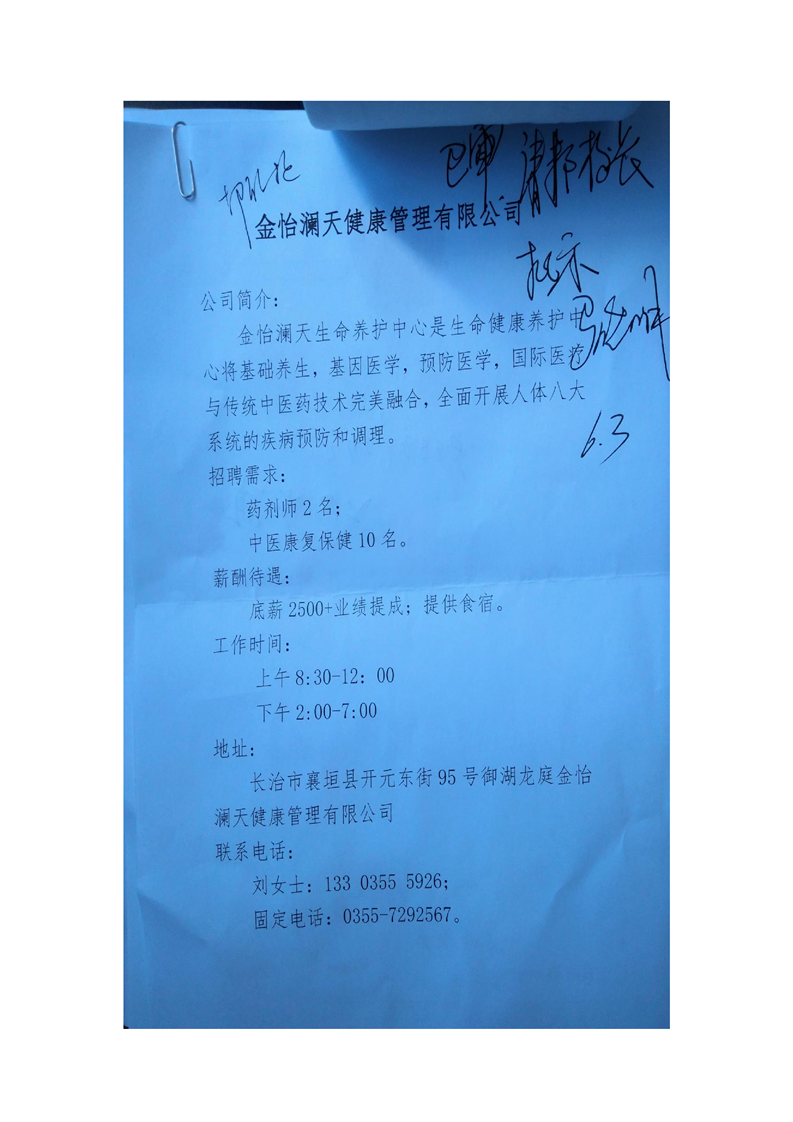 已审 请郭校长
金怡澜天健康管理有限公司
批示
6.3
公司简介：
金怡澜天生命养护中心是生命健康养护中
心将基础养生，基因医学，预防医学，国际医疗
与传统中医药技术完美融合，全面开展人体八大
系统的疾病预防和调理。
招聘需求：
药剂师 2 名；
中医康复保健 10 名。
薪酬待遇：
底薪 2500+业绩提成；提供食宿。
工作时间：
上午 8:30-12：00
下午 2:00-7:00
地址：
长治市襄垣县开元东街 95 号御湖龙庭金怡
澜天健康管理有限公司
联系电话：
刘女士：133 0355 5926；
固定电话：0355-7292567。